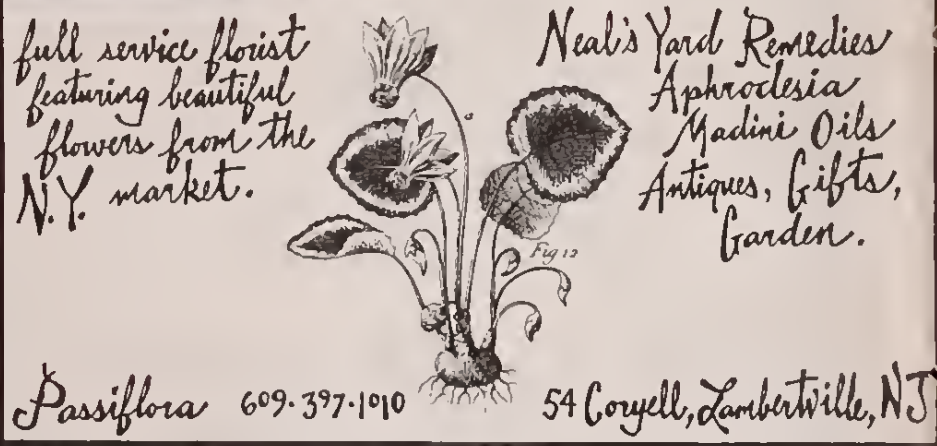 full service florist
featuring beautiful
flowers from the
N.Y. market.
Neal's Yard Remedies
Aphrodesia
Madini Oils
Antiques, Gifts,
Garden.
Fig 12
Passiflora 609·397·1010 54 Coryell, Lambertville, NJ